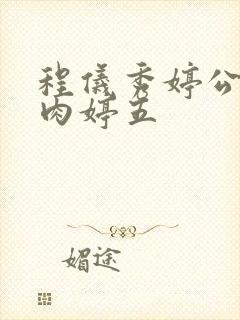 程仪秀婷公
肉婷五
媚途